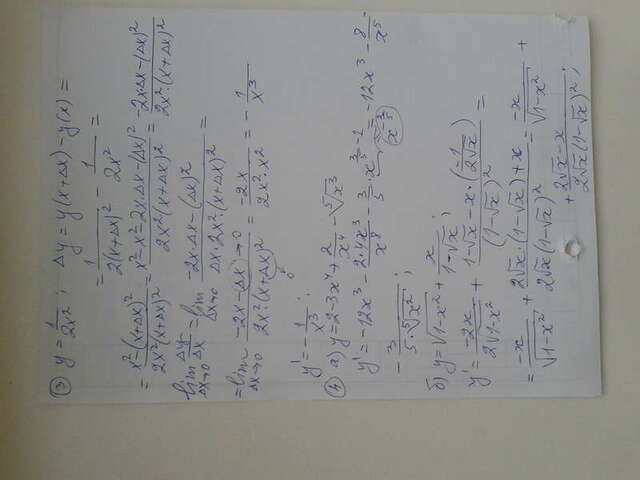 ③ y = 1/(2x²); Δy = y(x+Δx) - y(x) =
= 1/(2(x+Δx)²) - 1/(2x²) =
= (x²-(x+Δx)²)/(2x²(x+Δx)²) = (x²-x²-2x·Δx-(Δx)²)/(2x²(x+Δx)²) = (-2x·Δx-(Δx)²)/(2x²·(x+Δx)²)
lim Δx→0 Δy/Δx = lim Δx→0 (-2x·Δx-(Δx)²)/(Δx·2x²·(x+Δx)²) =
= lim Δx→0 (-2x-(Δx)→0)/(2x²(x+Δx)²) = (-2x)/(2x²·x²) = -1/x³
y' = -1/x³;
④ а) y = 2-3x⁴+2/x⁴-⁵√x³
y' = -12x³ - (2·4x³)/x⁸ - 3/5·x^(3/5-1) = -12x³ - 8/x⁵
- 3/(5·⁵√x²);
б) y = √(1-x²) + x/(1-√x);
y' = (-2x)/(2√(1-x²)) + (1-√x-x·(-1/(2√x)))/(1-√x)² =
= (-x)/√(1-x²) + (2√x·(1-√x)+x)/(2√x(1-√x)²) = (-x)/√(1-x²) +
+ (2√x-x)/(2√x(1-√x)²);